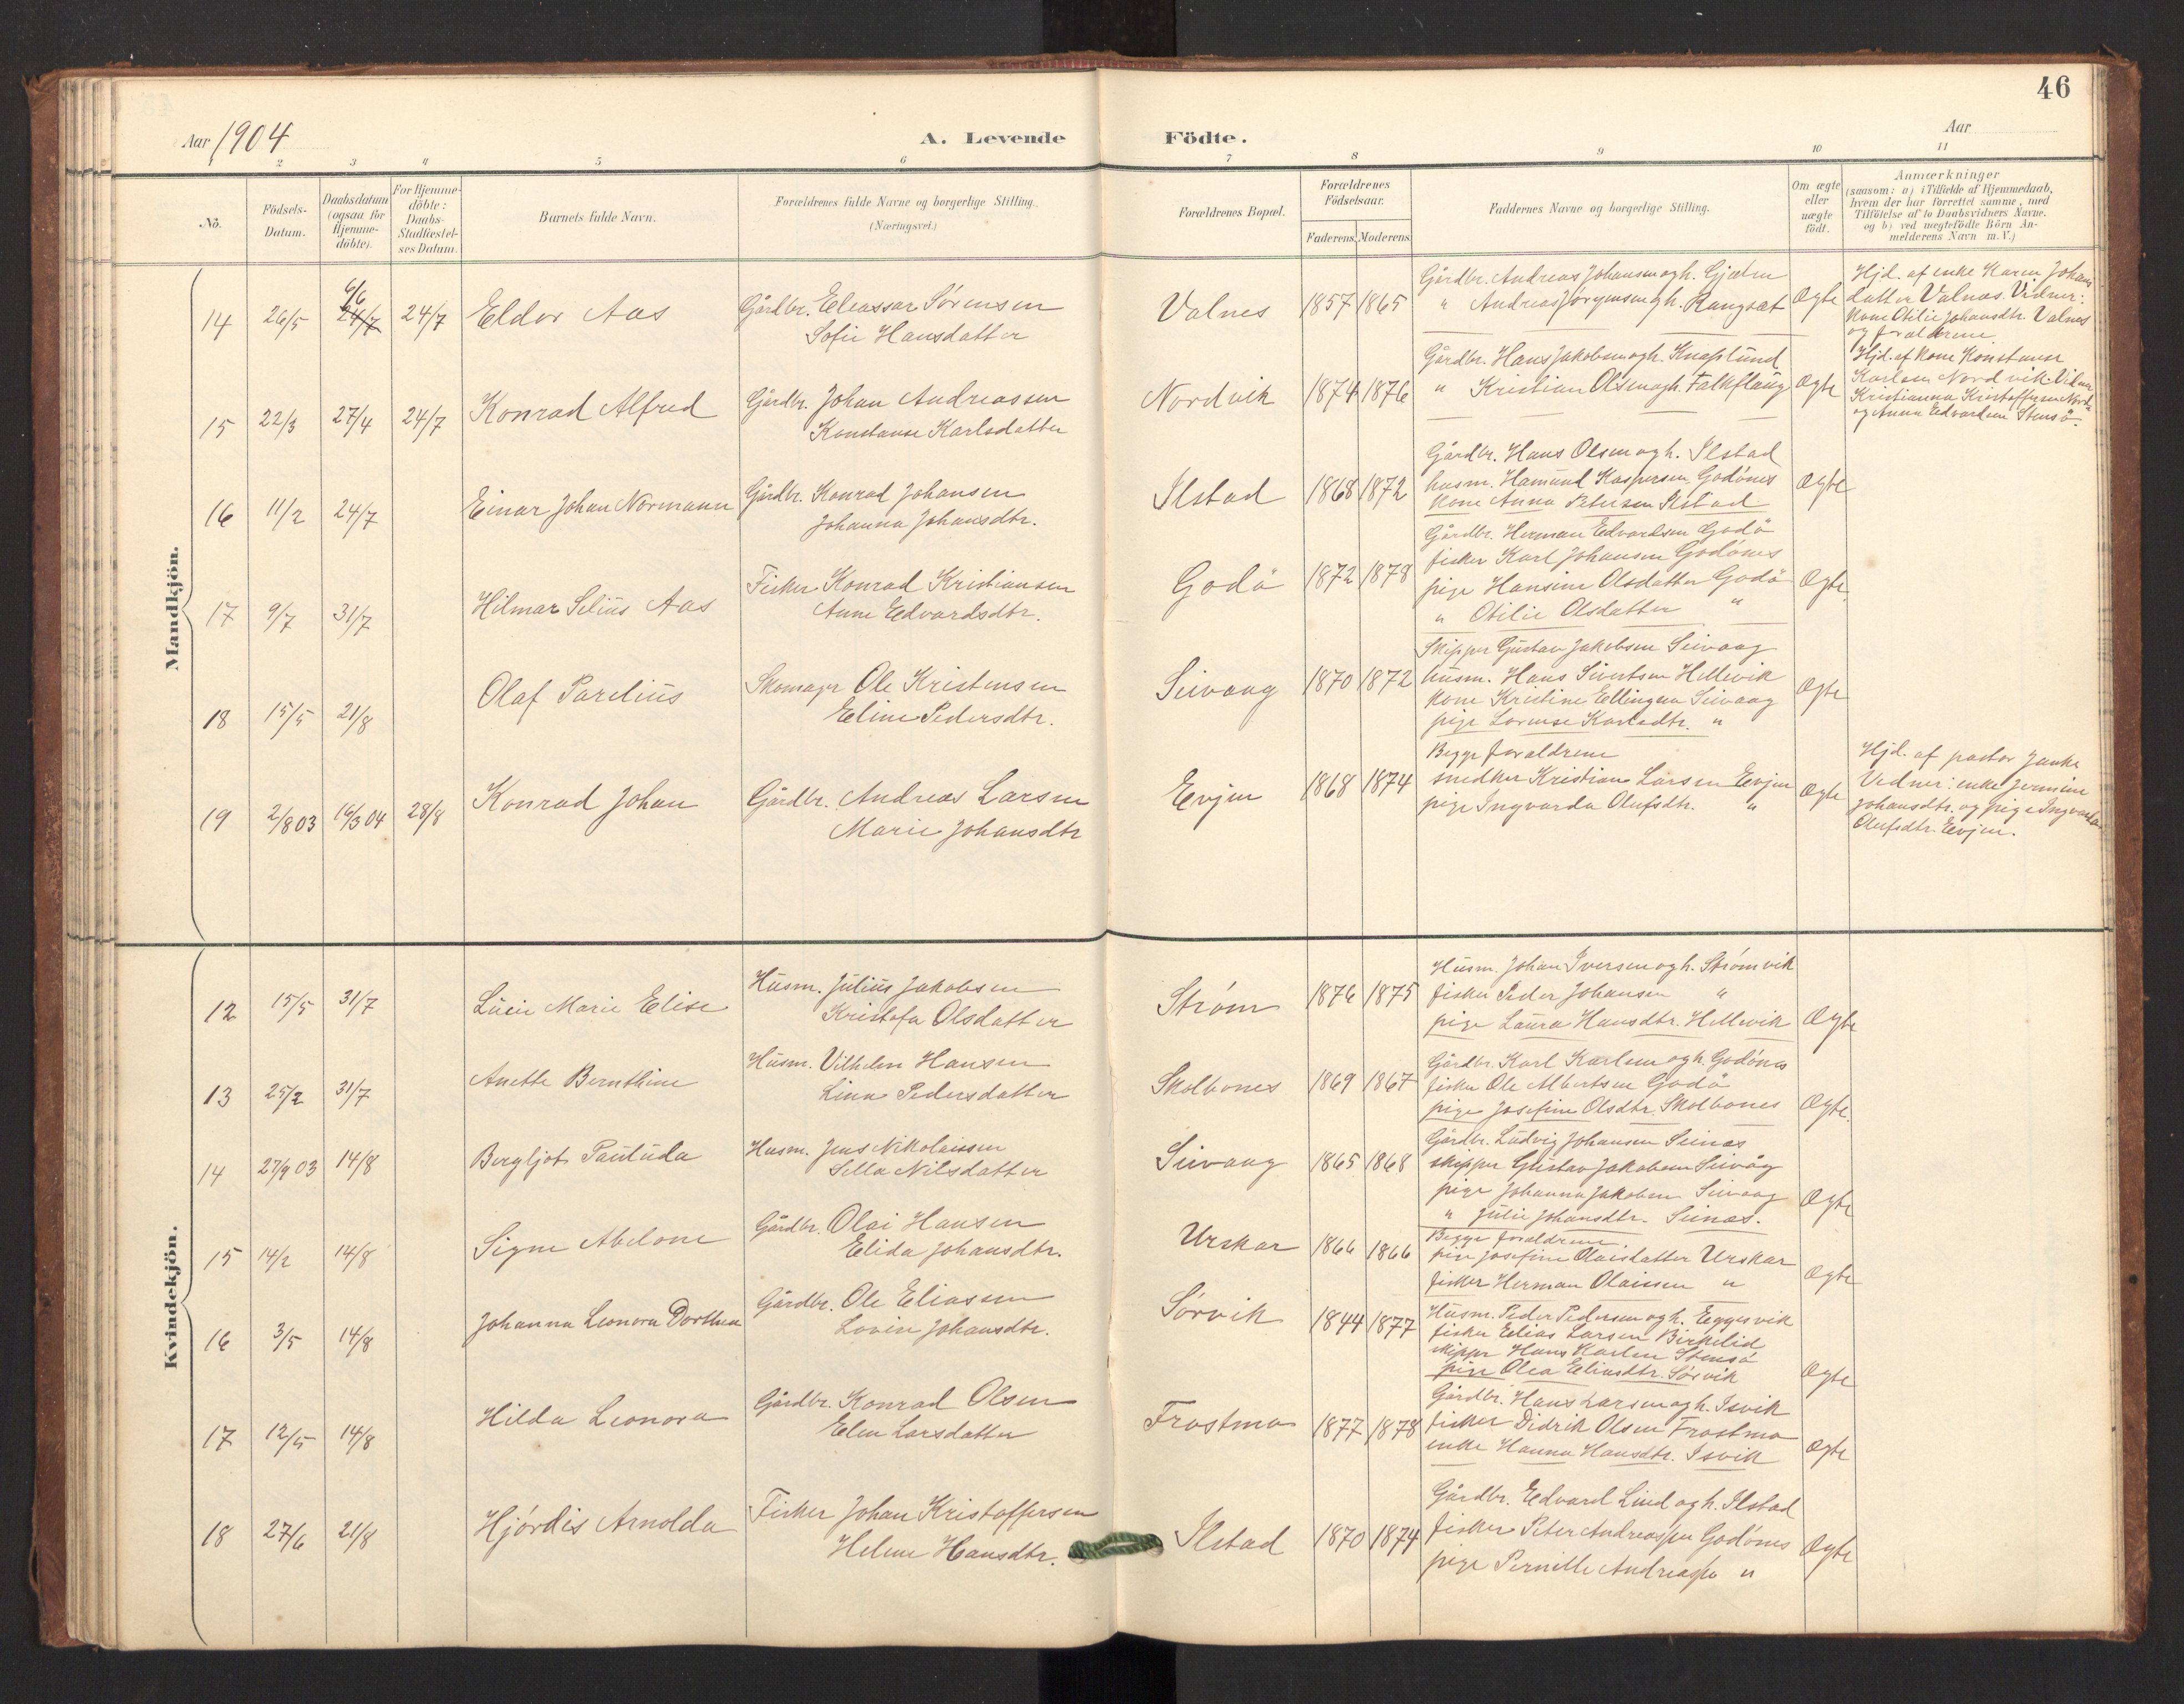 46
Aar 1904
A. Levende Födte.
Aar
1 2 3 4 5 6 7 8 9 10 11
Nö.
Födsels-Datum.
Daabsdatum (ogsaa for Hjemme-döbte).
For Hjemme-döbte: Daabs-Stadfæstel-ses Datum.
Barnets fulde Navn.
Forældrenes fulde Navne og borgerlige Stilling. (Næringsvei.)
Forældrenes Bopæl.
Forældrenes Födselsaar.
Faderens Moderens
Faddernes Navne og borgerlige Stilling.
Om ægte eller uægte födt.
Anmærkninger (saasom: a) i Tilfælde af Hjemmedaab, hvem der har forrettet samme, med Tilföielse af to Daabsvidners Navne. og b) ved uægtefödte Börn An-melderens Navn m. V.)
Mandkjön.
14 26/5 6/6 24/7 24/7 Eldor Aas
Gårdbr. Eleassar Sørensen
Sofie Hansdatter
Valnes 1857 1865
Gårdbr. Andreas Johansen og h. Gjælen
" Andreas Jørgensen og h. Rangsæt
Ægte
Hjd. af enke Karen Johans
datter Valnæs. Vidner:
kone Otilie Johansdtr. Valnes
og forældrene
15 22/3 27/4 24/7 Konrad Alfred
Gårdbr. Johan Andreassen
Konstanse Karlsdatter
Nordvik 1874 1876
Gårdbr. Hans Jakobsen og h. Knaplund
" Kristian Olsen og h. Falkflaug
Ægte
Hjd. af kone Konstanse
Karlsen Nordvik. Vidner
Kristianna Kristoffersen Nordv.
og Anna Edvardsen Stensö.
16 11/2 24/7 Einar Johan Normann
Gårdbr. Konrad Johansen
Johanna Johansdtr.
Ilstad 1868 1872
Gårdbr. Hans Olsen og h. Ilstad
husm. Hamund Kaspersen Godönes
kone Anna Petersen Ilstad
Ægte
17 9/7 31/7 Hilmar Selius Aas
Fisker Konrad Kristiansen
Anne Edvardsdtr.
Godö 1872 1878
Gårdbr. Herman Edvardsen Godö
fisker Karl Johansen Godönes
pige Hansine Olsdatter Godö
" Otilie Olsdatter "
Ægte.
18 15/5 21/8 Olaf Parelius
Skomager Ole Kristensen
Eline Pedersdtr.
Seivaag 1870 1872
Skipper Gustav Jakobsen Seivaag
husm. Hans Sivertsen Hellevik
kone Kristine Ellingsen Seivaag
pige Lorense Karlsdtr. "
Ægte
19 2/8 03 16/3 04 28/8 Konrad Johan
Gårdbr. Andreas Larsen
Marie Johansdtr
Evjen 1868 1874
Begge forældrene
snedker Kristian Larsen Evjen
pige Ingvarda Olufsdtr. "
Ægte
Hjd. af pastor Janke
Vidner: enke Jermine
Johansdtr. og pige Ingvarda
Olufsdtr. Evjen.
Kvindekjön.
12 15/5 31/7 Lucie Marie Elise
Husm. Julius Jakobsen
Kristofa Olsdatter
Strøm 1876 1875
Husm. Johan Iversen og h. Strømvik
fisker Peder Johansen "
pige Laura Hansdtr. Hellevik
Ægte
13 25/2 31/7 Anette Bernthine
Husm. Vilhelm Hansen
Lina Pedersdatter
Skolbones 1869 1867
Gårdbr. Karl Karlsen og h. Godönes
fisker Ole Albertsen Godö
pige Josefine Olsdtr. Skolbones
Ægte.
14 27/9 03 14/8 Bergljot Paulude
Husm. Jens Nikolaisen
Sella Nilsdatter
Seivaag 1865 1868
Gårdbr. Ludvig Johansen Seinæs
skipper Gustav Jakobsen Seivåg
pige Johanna Jakobsen Seivaag
" Julie Johansdtr. Seinæs.
Ægte
15 14/2 14/8 Signe Abelone
Gårdbr. Olai Hansen
Elida Johansdtr.
Urskar 1866 1866
Begge forældrene
pige Josefine Olaisdatter Urskar
fisker Herman Olaissen "
Ægte
16 3/5 14/8 Johanna Leonora Dorthea
Gårdbr. Ole Eliassen
Lovise Johansdtr.
Sørvik 1844 1877
Husm. Peder Pedersen og h. Eggesvik
fisker Elias Larsen Birkelid
skipper Hans Karlsen Stensö
pige Olea Eliasdtr. Sørvik
Ægte
17 12/5 14/8 Hilda Leonora
Gårdbr. Konrad Olsen
Elen Larsdatter
Frostmo 1877 1878
Gårdbr. Hans Larsen og h. Isvik
fisker Didrik Olsen Frostmo
enke Hanna Hansdtr. Isvik
Ægte
18 27/6 21/8 Hjørdis Arnolda
Fisker Johan Kristoffersen
Helene Hansdtr.
Ilstad 1870 1874
Gårdbr. Edvard Lind og h. Ilstad
fisker Peter Andreassen Godönes
pige Pernille Andreassen "
Ægte